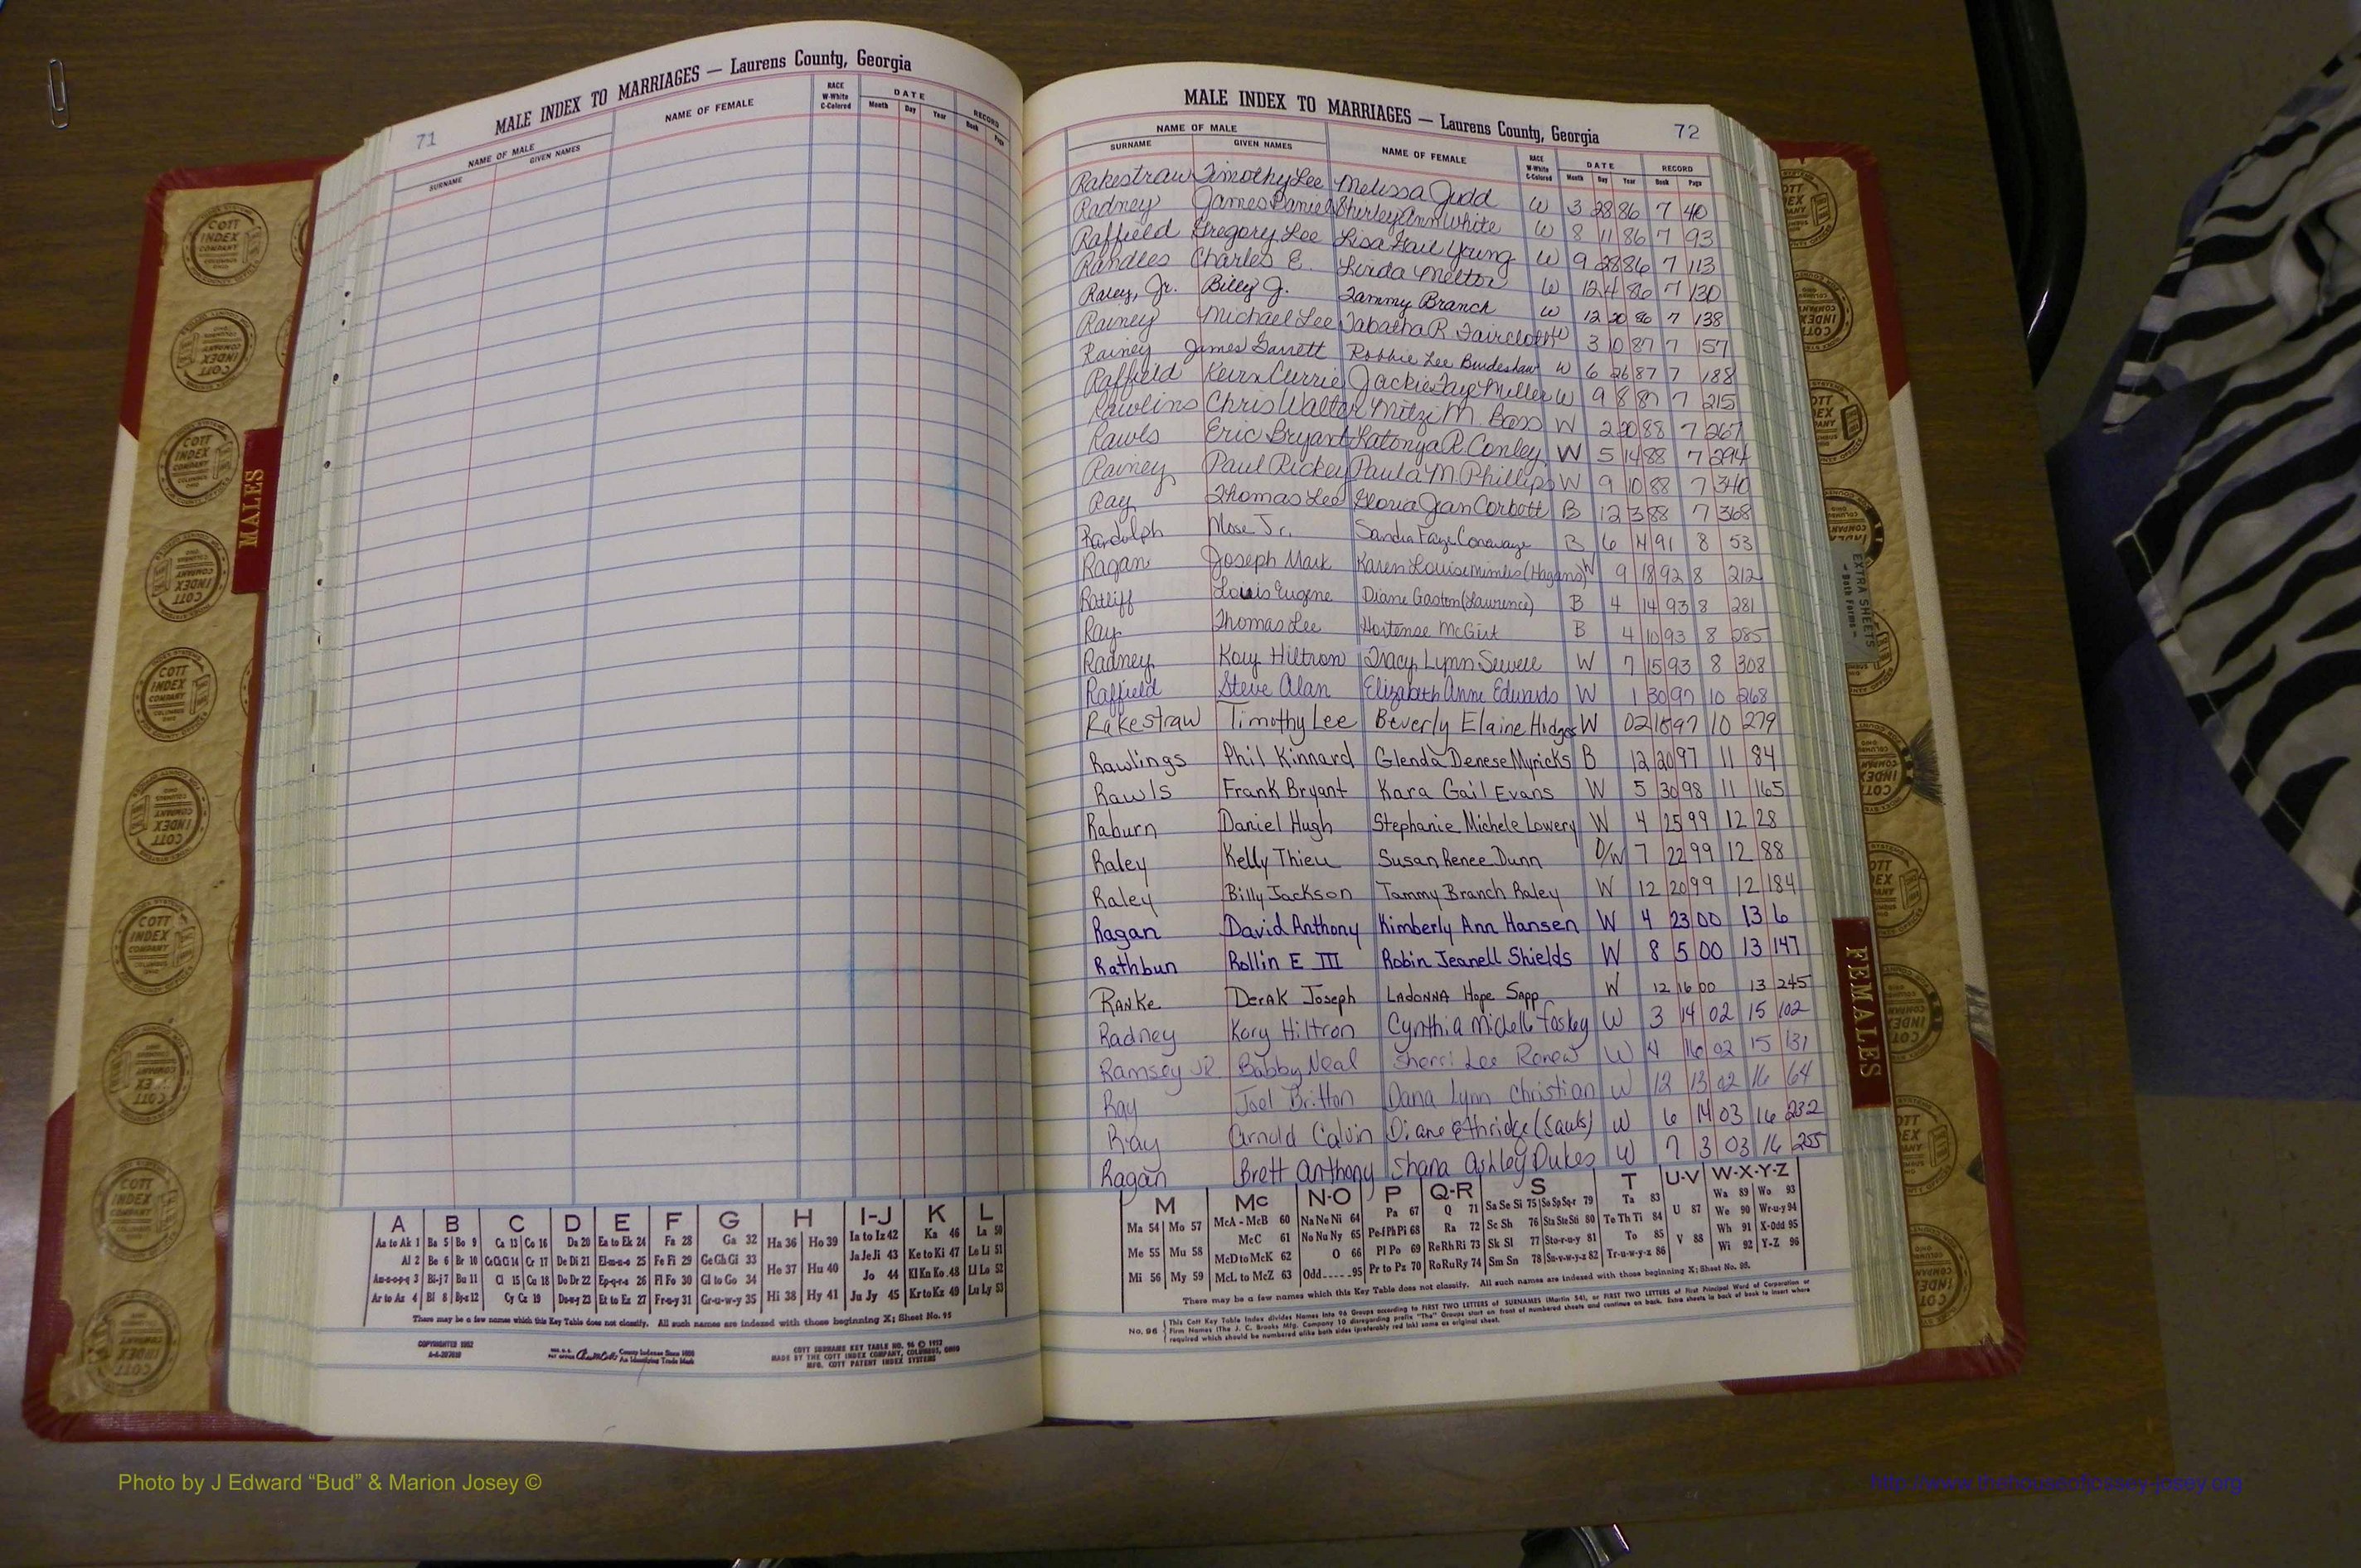 71
MALE INDEX TO MARRIAGES — Laurens County, Georgia
NAME OF MALE
SURNAME GIVEN NAMES NAME OF FEMALE RACE W-White C-Colored DATE Month Day Year RECORD Book Page
MALE INDEX TO MARRIAGES — Laurens County, Georgia 72
NAME OF MALE
SURNAME GIVEN NAMES NAME OF FEMALE RACE W-White C-Colored DATE Month Day Year RECORD Book Page
Rakestraw Timothy Lee Melissa Judd W 3 28 86 7 40
Radney James Daniel Shirley Ann White W 8 11 86 7 93
Raffield Gregory Lee Lisa Gail Young W 9 28 86 7 113
Randles Charles E. Linda Melton W 12 4 86 7 130
Raley, Jr. Billy J. Tammy Branch W 12 20 86 7 138
Rainey Michael Lee Tabatha R. Faircloth W 3 10 87 7 157
Rainey James Garrett Robbie Lee Burdeshaw W 6 26 87 7 188
Raffield Currie Jackie Faye Miller W 9 8 87 7 215
Rawlins Chris Walter Mitzi M. Bass W 2 20 88 7 267
Rawls Eric Bryant Latonya R. Conley W 5 14 88 7 294
Rainey Paul Rickey Paula M. Phillips W 9 10 88 7 340
Ray Thomas Lee Gloria Jean Corbett B 12 3 88 7 368
Randolph Mose Jr. Sandra Faye B 6 91 8 53
Ragan Joseph Mark Karen Louise Mimbs (Hagans) W 9 18 92 8 212
Ratliff Louis Eugene Diane Gaston (Lawrence) B 4 14 93 8 281
Ray Thomas Lee Hortense McGirt B 4 10 93 8 285
Radney Kory Hiltron Tracy Lynn Sewell W 7 15 93 8 308
Raffield Steve Alan Elizabeth Anne Edwards W 1 30 97 10 268
Rakestraw Timothy Lee Beverly Elaine Hodges W 02 15 97 10 279
Rawlings Phil Kinnard Glenda Denese Myricks B 12 20 97 11 84
Rawls Frank Bryant Kara Gail Evans W 5 30 98 11 165
Raburn Daniel Hugh Stephanie Michele Lowery W 4 25 99 12 28
Raley Kelly Thieu Susan Renee Dunn O/W 7 22 99 12 88
Raley Billy Jackson Tammy Branch Raley W 12 20 99 12 184
Ragan David Anthony Kimberly Ann Hansen W 4 23 00 13 6
Rathbun Rollin E III Robin Jeanell Shields W 8 5 00 13 147
Ranke Derak Joseph LaDonna Hope Sapp W 12 16 00 13 245
Radney Kory Hiltron Cynthia Michelle Foskey W 3 14 02 15 102
Ramsey JR Bobby Neal Sherri Lee Renew W 4 16 02 15 131
Ray Joel Britton Dana Lynn Christian W 12 13 02 16 64
Ray Arnold Calvin Diane Ethridge (Sauls) W 6 14 03 16 232
Ragan Brett Anthony Shana Ashley Dukes W 7 3 03 16 255
A B C D E F G H I-J K L
Aa to Ak 1 Ba 5 Bo 9 Ca 13 Co 16 Da 20 Ea to Ek 24 Fa 28 Ga 32 Ha 36 Ho 39 Ia to Iz 42 Ka 46 La 50
Al 2 Be 6 Br 10 Ce Ch Ci 14 Cr 17 De Di 21 El-m-n-o 25 Fe Fi 29 Ge Gh Gi 33 He 37 Hu 40 Ja Je Ji 43 Ke to Ki 47 Le Li 51
Am-n-o-p-q 3 Bi-j 7 Bu 11 Cl 15 Cu 18 Do Dr 22 Ep-q-r-s 26 Fl Fo 30 Gl to Go 34 Hi 38 Hy 41 Jo 44 Kl Kn Ko 48 Ll Lo 52
Ar to Az 4 Bl 8 By-z 12 Cy Cz 19 Du-w-y 23 Et to Ez 27 Fr-u-y 31 Gr-u-w-y 35 Ju Jy 45 Kr to Kz 49 Lu Ly 53
There may be a few names which this Key Table does not classify. All such names are indexed with those beginning X; Sheet No. 95
COPYRIGHTED 1952
COTT SURNAME KEY TABLE NO. 96 © 1952
MADE BY THE COTT INDEX COMPANY, COLUMBUS, OHIO
MFG. COTT PATENT INDEX SYSTEMS
County Indexes Since 1888
An Identifying Trade Mark
M Mc N-O P Q-R S T U-V W-X-Y-Z
Ma 54 Mo 57 McA - McB 60 Na Ne Ni 64 Pa 67 Q 71 Sa Se Si 75 So Sp Sq-r 79 Ta 83 U 87 Wa 89 Wo 93
Me 55 Mu 58 McC 61 No Nu Ny 65 Pe-f Ph Pi 68 Ra 72 Sc Sh 76 Sta Ste Sti 80 Te Th Ti 84 V 88 We 90 Wr-u-y 94
Mi 56 My 59 McD to McK 62 O 66 Pl Po 69 Re Rh Ri 73 Sk Sl 77 Sto-r-u-y 81 To 85 Wh 91 X-Odd 95
McL to McZ 63 Odd-----95 Pr to Pz 70 Ro Ru Ry 74 Sm Sn 78 Su-v-w-y-z 82 Tr-u-w-y-z 86 Wi 92 Y-Z 96
There may be a few names which this Key Table does not classify. All such names are indexed with those beginning X; Sheet No. 95.
No. 96 This Cott Key Table Index divides Names into 96 Groups according to FIRST TWO LETTERS of SURNAMES (Martin 54), or FIRST TWO LETTERS of First Principal Word of Corporation or
Firm Names (The J. C. Brooks Mfg. Company 10 disregarding prefix "The" Groups start on front of numbered sheets and continue on back. Extra sheets in back of book to insert where
required which should be numbered alike both sides (preferably red ink) same as original sheet.
MALES
FEMALES
EXTRA SHEETS
— Both Forms —
COTT INDEX COMPANY COLUMBUS OHIO
Photo by J Edward “Bud” & Marion Josey ©
http://www.thehouseofjossey-josey.org